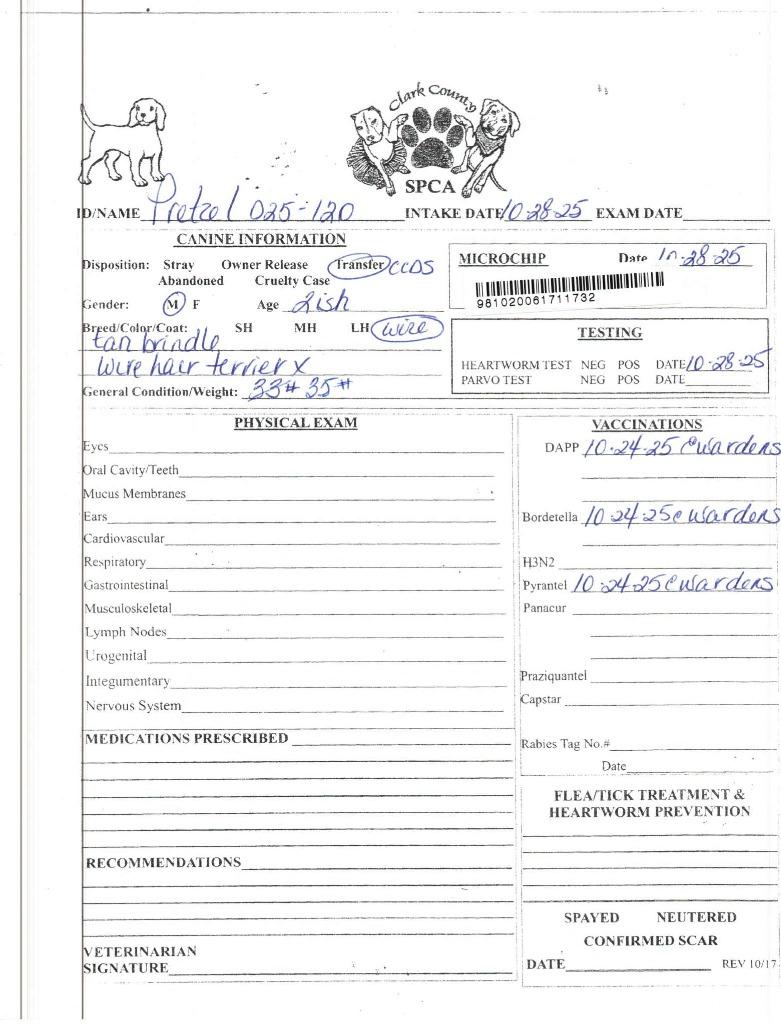 Clark County
SPCA
ID/NAME Pretzel 025-120 INTAKE DATE 10-28-25 EXAM DATE
CANINE INFORMATION
Disposition: Stray Owner Release Transfer CCDS
Abandoned Cruelty Case
Gender: M F Age 2ish
Breed/Color/Coat: SH MH LH wire
tan brindle
wire hair terrier x
General Condition/Weight: 33# 35#
MICROCHIP Date 10-28-25
981020061711732
TESTING
HEARTWORM TEST NEG POS DATE 10-28-25
PARVO TEST NEG POS DATE
PHYSICAL EXAM
Eyes
Oral Cavity/Teeth
Mucus Membranes
Ears
Cardiovascular
Respiratory
Gastrointestinal
Musculoskeletal
Lymph Nodes
Urogenital
Integumentary
Nervous System
MEDICATIONS PRESCRIBED
RECOMMENDATIONS
VETERINARIAN
SIGNATURE
VACCINATIONS
DAPP 10-24-25 @wardens
Bordetella 10-24-25 @ wardens
H3N2
Pyrantel 10-24-25 @ wardens
Panacur
Praziquantel
Capstar
Rabies Tag No.#
Date
FLEA/TICK TREATMENT &
HEARTWORM PREVENTION
SPAYED NEUTERED
CONFIRMED SCAR
DATE REV 10/17